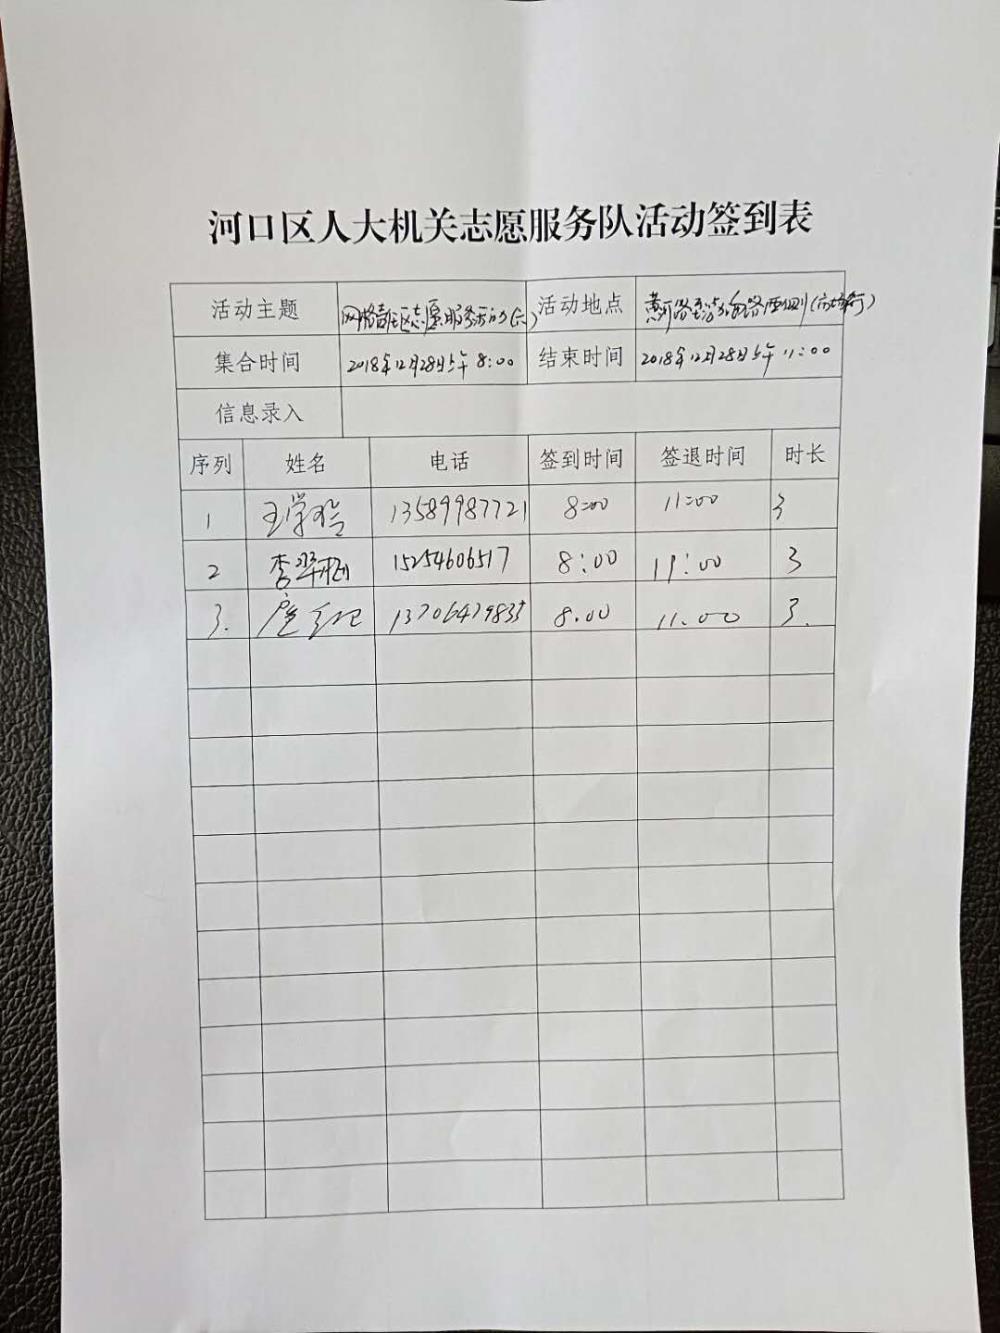 河口区人大机关志愿服务队活动签到表
活动主题 网格责任区志愿服务活动(六) 活动地点 黄河路至海盛路西侧
集合时间 2018年12月28日上午8:00 结束时间 2018年12月28日上午11:00
信息录入
序列 姓名 电话 签到时间 签退时间 时长
1 王学玲 13589987721 8:00 11:00 3
2 李翠梅 15254606517 8:00 11:00 3
3. 13706479835 8.00 11.00 3.